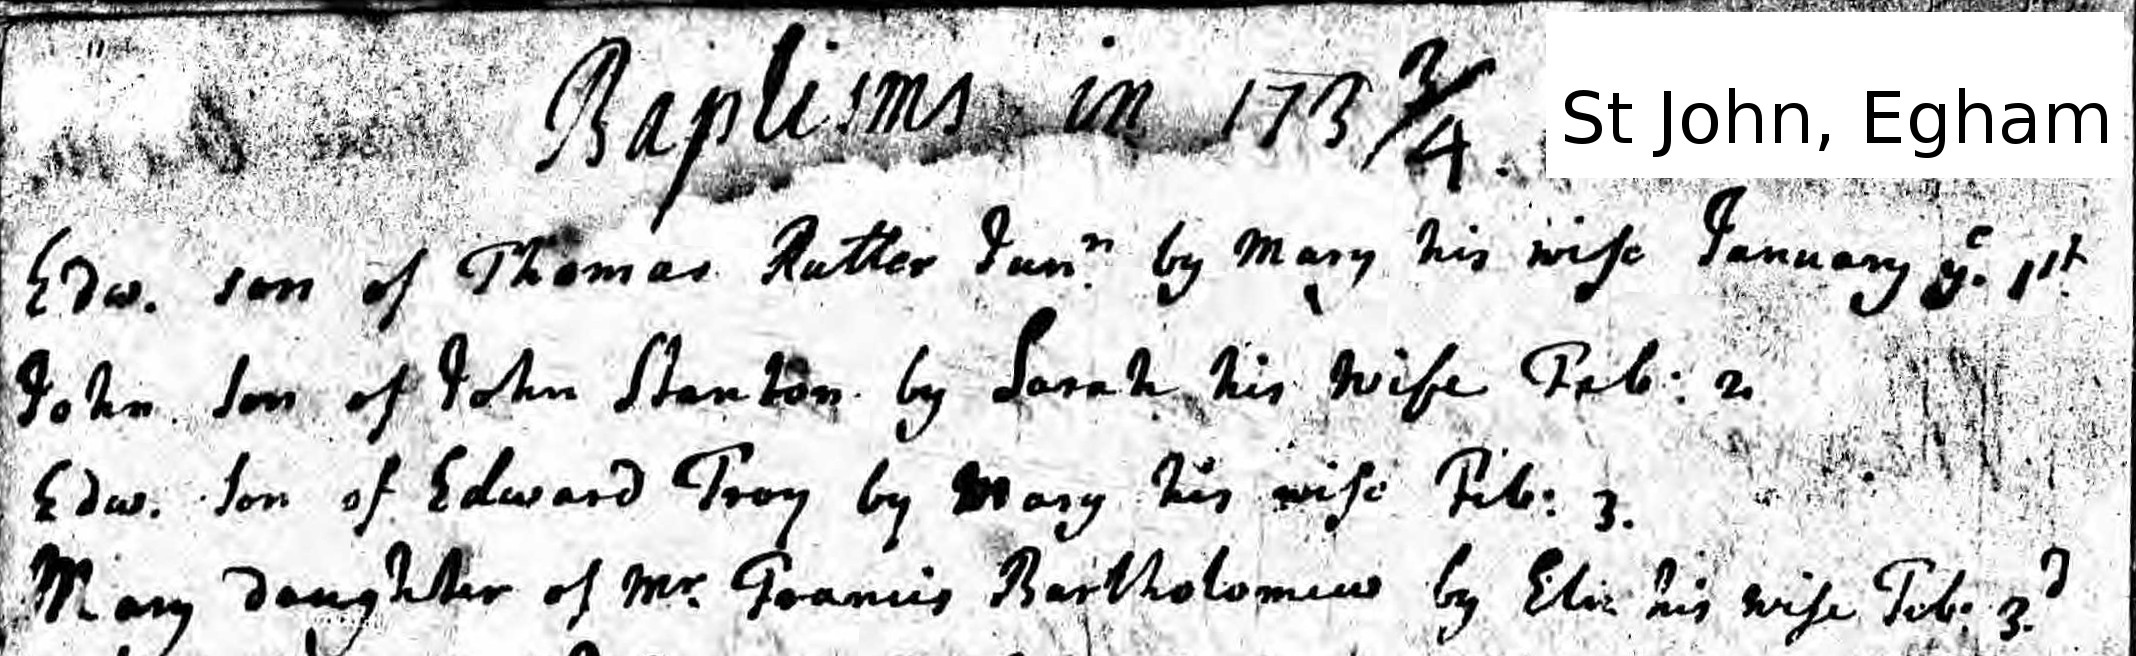 Baptisms in 173 3/4.
St John, Egham
Edw. son of Thomas Rutter Junr. by Mary his wife January ye. 1st.
John son of John Stanton by Sarah his wife Feb: 2.
Edw. son of Edward Troy by Mary his wife Feb: 3.
Mary daughter of Mr. Francis Bartholomew by Eliz his wife Feb: 3.d